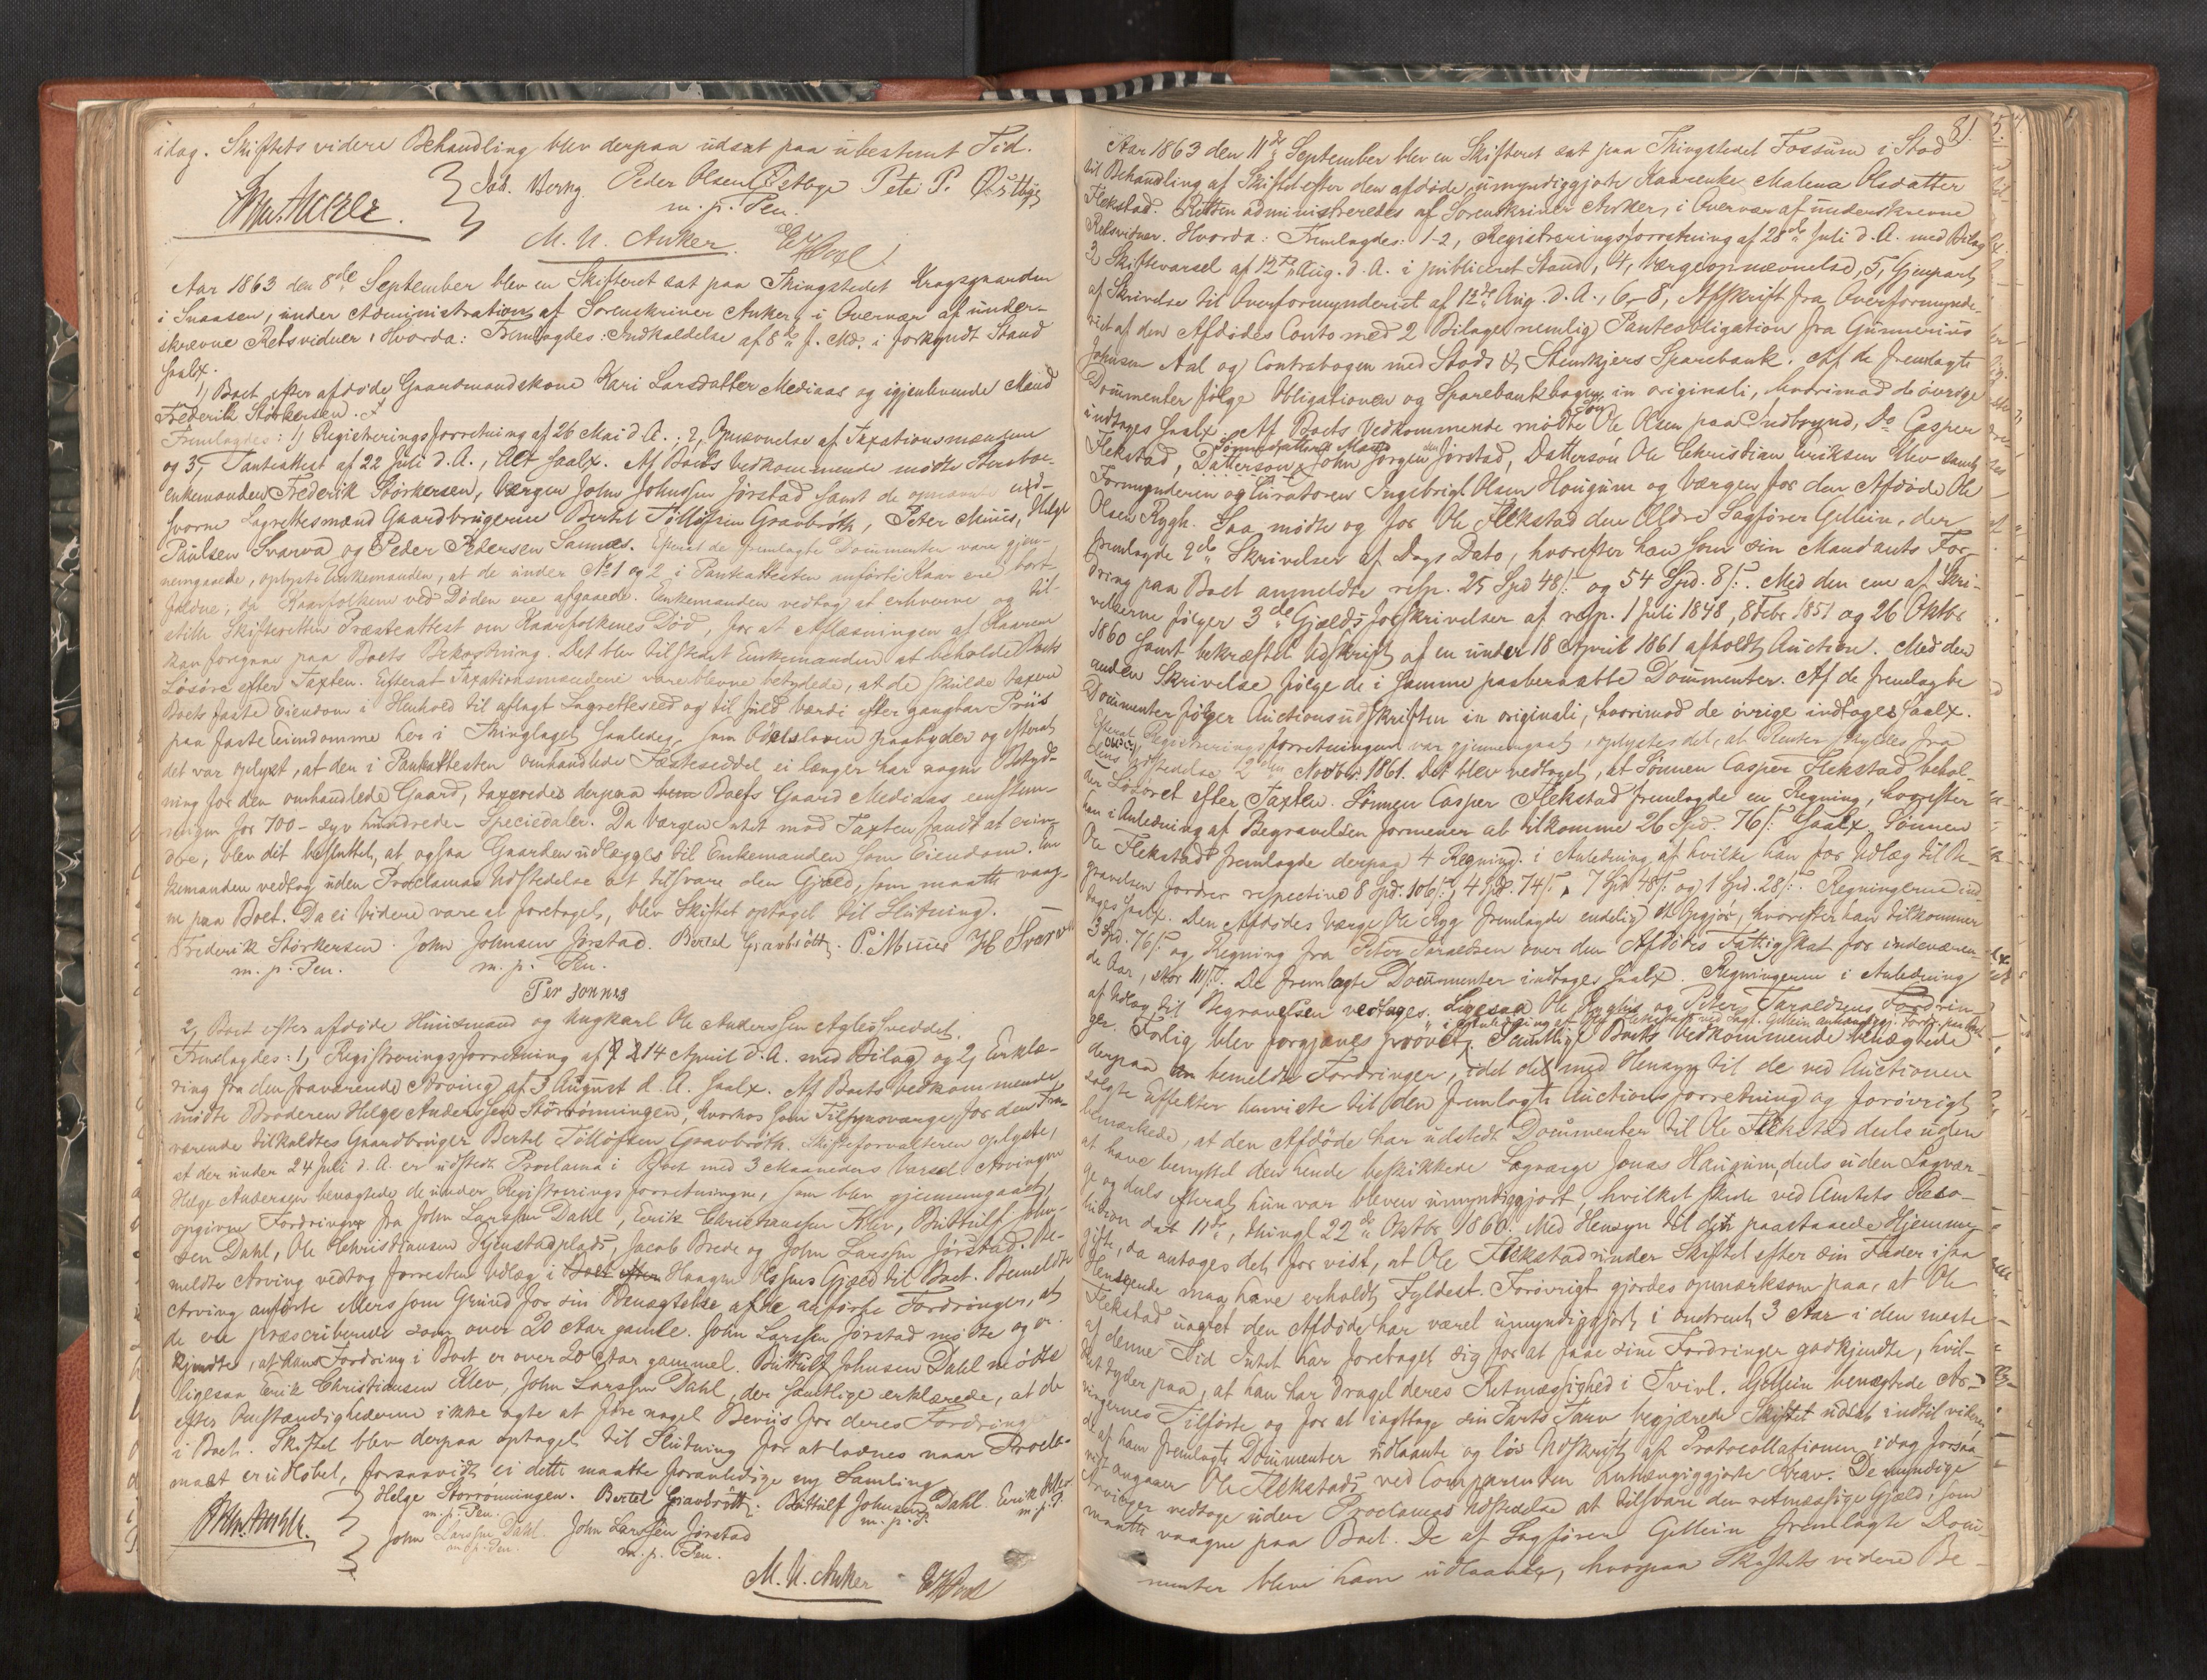 idag. Skiftets videre Behandling blev derpaa udsat paa ubestemt Tid.
Joh. Berng. Peder Olsen Østbye Peter P. Østbye
m. p. Pen.
M. N. Anker.
Aar 1863 den 8de September blev en Skifteret sat paa Thingstedet Kragsgranden
i Snaasen, under Administration af Sorenskriver Anker, i Overvær af under-
skrevne Retsvidner. Hvorda: Fremlagdes: Indkaldelse af 8de f. Md. i forkyndt Stand
saalx.
1, Boet efter afdøde Gaardmandskone Kari Larsdatter Mediaas og igjenlevende Mand
Frederik Størkersen.
Fremlagdes: 1, Registreringsforretning af 26 Mai d. A.; 2, Opnævnelse af Taxationsmændene
og 3, Panteattest af 22 Juli d. A., Alt saalx. Af Boets Vedkommende mødte Sterbbo-
enkemanden Frederik Størkersen, Værgen John Johnssen Jørstad samt de opnævnte eed-
svorne Lagrettesmænd Gaardbrugerne Bertel Tølløfsen Gravbrøth, Peter Muus, Helge
Paulsen Svarva og Peder Pedersen Sannes. Efterat de fremlagte Documenter vare gjen-
nemgaaede, oplyste Enkemanden, at de under No 1 og 2 i Panteattesten anførte Kaar ere bort-
faldne, da Kaarfolkene ved Døden ere afgaaede. Enkemanden vedtog at erhverve og til-
stille Skifteretten Præsteattest om Kaarfolkenes Død, for at Aflæsningen af Kaarene
kan foregaae paa Boets Bekostning. Det blev tilstedt Enkemanden at beholde Boets
Løsøre efter Taxten. Efterat Taxationsmændene vare blevne betydede, at de skulde taxere
Boets faste Eiendom i Henhold til aflagt Lagretteseed og til fuld Værdi efter gangbar Priis
paa faste Eiendomme her i Thinglaget saaledes som Odelsloven paabyder og efterat
det var oplyst, at den i Panteattesten omhandlede Fæsteseddel ei længer har nogen Betyd-
ning for den omhandlede Gaard, taxeredes derpaa Boets Gaard Mediaas eenstem-
migen for 700 - syv hundrede - Speciedaler. Da Værgen Intet mod Taxten fandt at erin-
dre, blev det besluttet, at ogsaa Gaarden udlægges til Enkemanden som Eiendom. En-
kemanden vedtog uden Proclamas Udstedelse at tilsvare den Gjæld, som maatte vaag-
ne paa Boet. Da ei videre vare at foretages, blev Skiftet optaget til Slutning.
Frederik Størkersen. John Johnsen Jørstad. Bertel Gravbrøtt. P. Muus H Svarva
m. p. Pen. m. p. Pen.
Per Sonnes
2, Boet efter afdøde Huusmand og Ungkarl Ole Anderssen Agle
Fremlagdes: 1, Registreringsforretning af 14 April d. A. med Bilag og 2, Erklæ-
ring fra den fraværende Arving af 3 August d. A. saalx. Af Boets Vedkommende
mødte Broderen Helge Anderssen Storrønningen, hvorhos som Tilsynsværge for den Fra-
værende tilkaldtes Gaardbruger Bertel Tølløfsen Gravbrøth. Skifteforvalteren oplyste,
at der under 24 Juli d. A. er udstedt Proclama i Boet med 3 Maaneders Varsel. Arvingen
Helge Andersen benægtede de under Registreringsforretningen, som blev gjennemgaaet,
opgivne Fordringer fra John Larssen Dahl, Erik Christianssen Klev, Buttulf John-
sen Dahl, Ole Christiansen Kjenstadplads, Jacob Brede og John Larssen Jørstad. Be-
meldte Arving vedtog forresten Udlæg i Haagen Olssens Gjæld til Boet. Bemeldte
Arving anførte Mere som Grund for sin Benægtelse af de anførte Fordringer, at
de ere præscriberede som over 20 Aar gamle. John Larssen Jørstad mødte og er-
kjendte, at hans Fordring i Boet er over 20 Aar gammel. Buttulf Johnsen Dahl mødte
ligesaa Erik Christiansen Klev, John Larssen Dahl, der samtlige erklærede, at de
efter Omstændighederne ikke agte at føre noget Beviis for deres Fordringer
i Boet. Skiftet blev derpaa optaget til Slutning for at lodnes naar Procla-
maet er udløbet, forsaavidt ei dette maatte foranledige ny Samling.
Helge Storrønningen. Bertel Gravbrøtt. Buttulf Johnsen Dahl. Erik Klev
m. p. Pen. m. p. P. m. p. P.
John Larssen Dahl. John Larssen Jørstad
m. p. Pen. m. p. Pen.
M. N. Anker
81.
Aar 1863 den 11de September blev en Skifteret sat paa Thingstedet Fossum i Stod
til Behandling af Skiftet efter den afdøde, umyndiggjorte Kaarenke Malena Olsdatter
Flekstad. Retten administreredes af Sorenskriver Anker, i Overvær af underskrevne
Retsvidner. Hvorda: Fremlagdes: 1-2, Registreringsforretning af 28de Juli d. A. med Bilag
3 Skiftevarsel af 12te Aug. d. A. i publiceret Stand, 4, Værgeopnævnelse, 5, Gjenpart
af Skrivelse til Overformynderiet af 12te Aug. d. A., 6-8, Afskrift fra Overformynde-
riet af den Afdødes Conto med 2 Bilage, nemlig Panteobligation fra Gunnerius
Johnsen Aal og Contrabogen med Stods & Steinkjers Sparebank. Af de fremlagte
Documenter følge Obligationen og Sparebankbogen in originali, hvorimod de øvrige
indtages saalx. Af Boets Vedkommende mødte Søn Ole Olsen paa Indbrynd, Do Casper
Flekstad, Sønnedatters Mand John Jørgen Jørstad, Dattersøn Ole Christian Eriksen Klev samt
Formynderen og Curatoren Ingebrigt Olsen Hougum og Værgen for den Afdøde Ole
Olsen Rygh. Saa mødte og for Ole Flekstad den Ældre Sagfører Gellein, der
fremlagde 2de Skrivelser af Dags Dato, hvorefter han som sin Mandants For-
dring paa Boet anmeldte resp. 25 Spd 48 ß og 54 Spd. 8 ß. Med den ene af Skri-
velserne følger 3de Gjældsforskrivelser af resp. 1 Juli 1848, 8 Febr 1851 og 26 Oktbr
1860 samt bekræftet Udskrift af en under 18 April 1861 afholdt Auction. Med den
anden Skrivelse følge de i samme paaberaabte Documenter. Af de fremlagte
Documenter følger Auctionsudskriften in originali, hvorimod de øvrige indtages saalx.
Efterat Registreringsforretningen var gjennemgaaet, oplystes det, at Renter skyldes fra
Udstedelse 2den Novbr. 1861. Det blev vedtaget, at Sønnen Casper Flekstad behol-
der Løsøret efter Taxten. Sønnen Casper Flekstad fremlagde en Regning, hvorefter
han i Anledning af Begravelsen formener at tilkomme 26 Spd. 76 ß. Saalx. Sønnen
Ole Flekstad fremlagde derpaa 4 Regning. i Anledning af hvilke han for Udlæg til Be-
gravelsen fordrer respective 8 Spd. 106 ß, 4 Spd. 74 ß, 7 Spd 48 ß og 1 Spd. 28 ß. Regningerne ind-
tages saalx. Den Afdødes Værge Ole Ryg fremlagde endelig et Opgjør, hvorefter han tilkommer
3 Spd. 76 ß og Regning fra Peter Taraldsen over den Afdødes Fattigskat for indeværen-
de Aar, stor 111 ß. De fremlagte Documenter indtages saalx. Regningerne i Anledning
af Udlæg til Begravelsen vedtages. Ligesaa Ole Ryghs og Peter Taraldsens Fordrin-
ger. Forlig blev forgjæves prøvet. Samtlige Boets Vedkommende benægtede
derpaa bemeldte Fordringer, idet de med Hensyn til de ved Auctionen
solgte Effekter henviste til den fremlagte Auctionsforretning og forøvrigt
bemærkede, at den Afdøde har udstedt Documenter til Ole Flekstad deels uden
at have benyttet den hende beskikkede Lagværge Jonas Haugum, deels uden Lagvær-
ge og deels efterat hun var bleven umyndiggjort, hvilket skede ved Amtets Reso-
lution dat 11te, thingl 22de Oktbr. 1860. Med Hensyn til den paastaaede Hjemme-
gifte, da antages det for vist, at Ole Flekstad under Skiftet efter sin Fader i saa
Henseende maa have erholdt Fyldest. Forøvrigt gjordes opmærksom paa, at Ole
Flekstad uagtet den Afdøde har været umyndiggjort i omtrent 3 Aar i den meste
af denne Tid Intet har foretaget sig for at faae sine Fordringer godkjendte, hvil-
ket tyder paa, at han har draget deres Retmæssighed i Tvivl. Gellein benægtede Ar-
vingernes Tilførte og for at iagttage sin Parts Tarv begjærede Skiftet udsat indtil videre,
de af ham fremlagte Documenter udlaante og lov Udskrift af Protocollationen idag forsaa-
vidt angaaer Ole Flekstads ved Comparenten anhængiggjorte Krav. De myndige
Arvinger vedtoge uden Proclamas Udstedelse at tilsvare den retmæssige Gjæld, som
maatte vaagne paa Boet. De af Sagfører Gellein fremlagte Docu-
menter bleve ham udlaante, hvorpaa Skiftets videre Be-